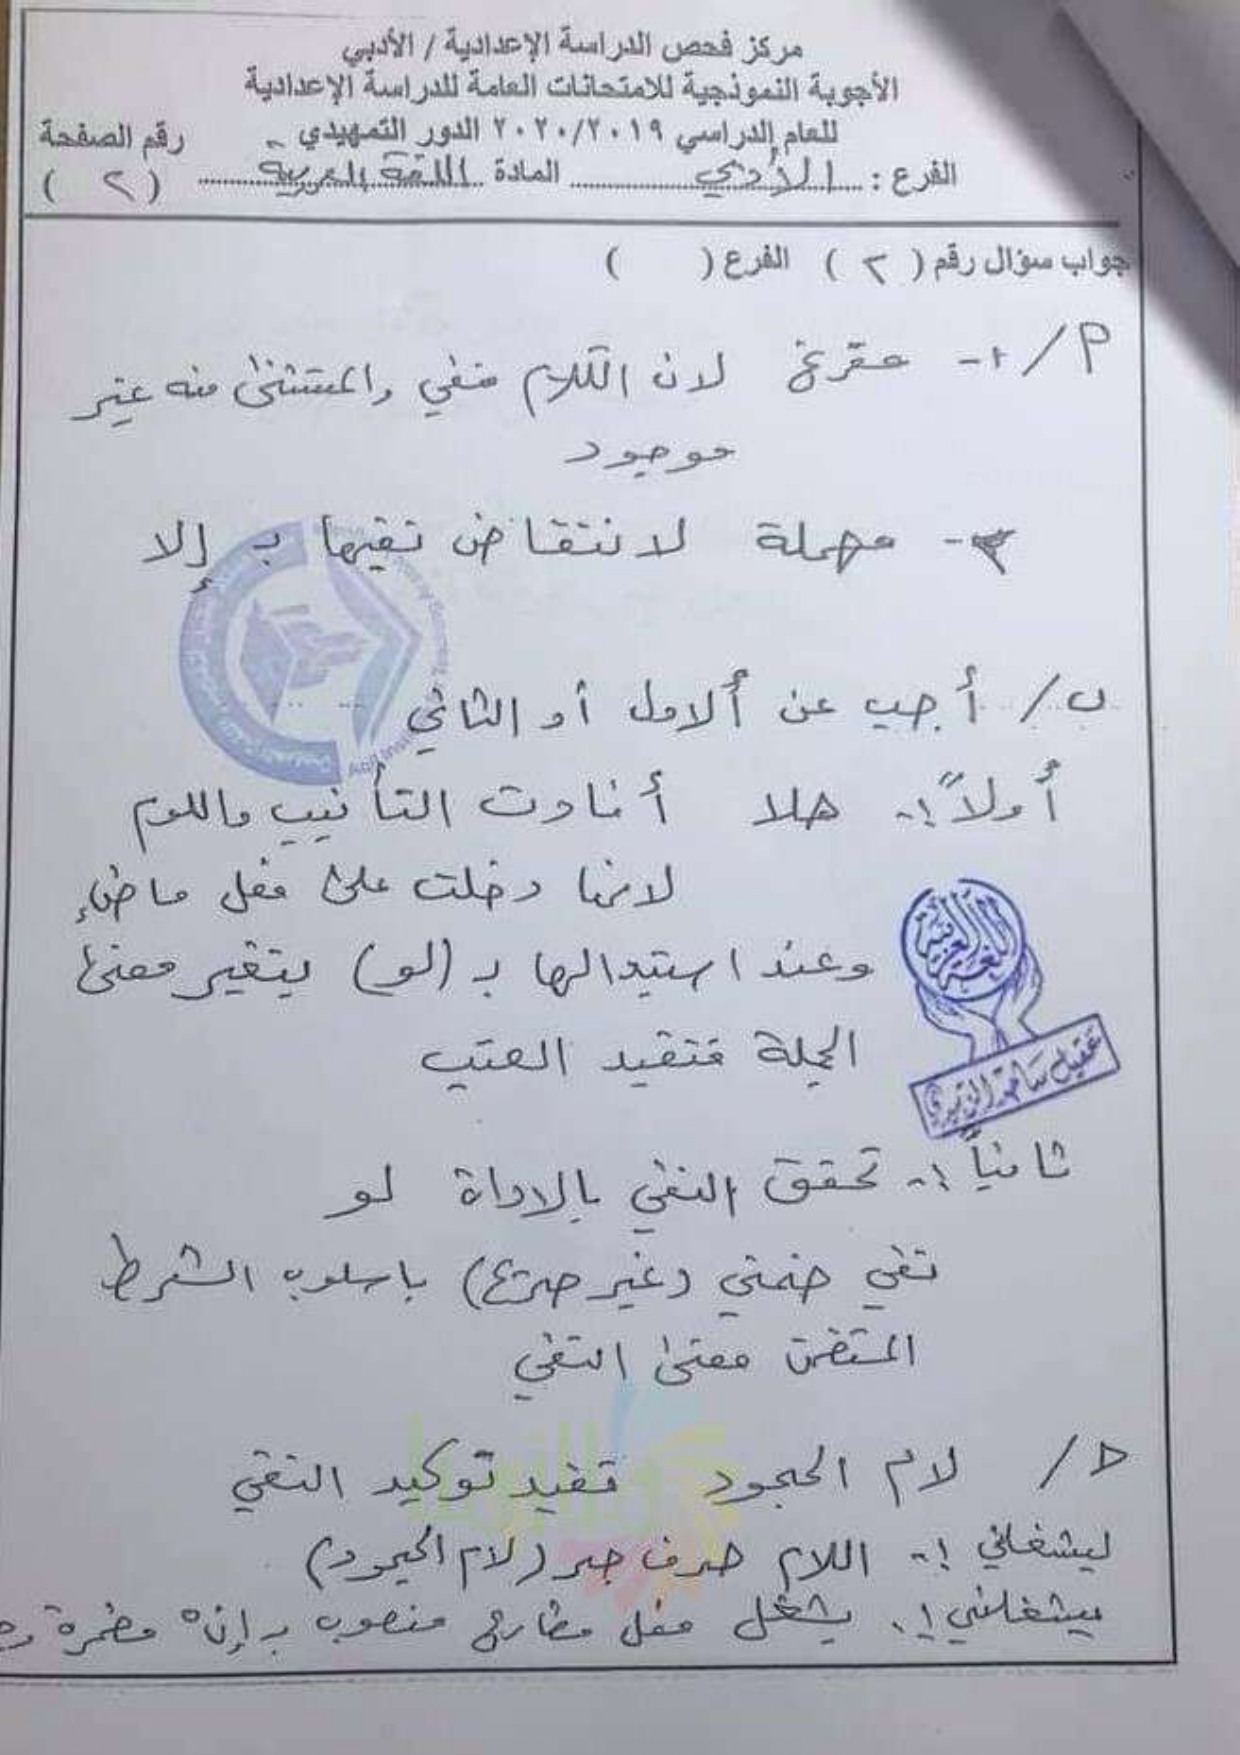 مركز فحص الدراسة الإعدادية / الأدبي
الأجوبة النموذجية للامتحانات العامة للدراسة الإعدادية
للعام الدراسي ٢٠٢٠/٢٠١٩ الدور التمهيدي
رقم الصفحة
الفرع : الأدبي المادة اللغة العربية ( ٢ )
جواب سؤال رقم ( ٢ ) الفرع ( )
م / ١- مفرغ لان الكلام منفي والمستثنى منه غير
موجود
٢- مهملة لانتقاض نفيها بـ إلا
ب / أجب عن ألاول أو الثاني
أولاً :- هلا أفادت التأنيب واللوم
لانها دخلت على فعل ماضٍ
وعند استبدالها بـ (لو) يتغير معنى
الجملة فتفيد العتب
اللغة العربية
ثانياً :- تحقق النفي بالاداة لو
نفي ضمني (غير صريح) باسلوب الشرط
المتضمن معنى النفي
ح / لام الجحود تفيد توكيد النفي
ليشغلني :- اللام حرف جر (لام الجحود)
يشغلني :- يشغل فعل مضارع منصوب بـ إنْ مضمرة